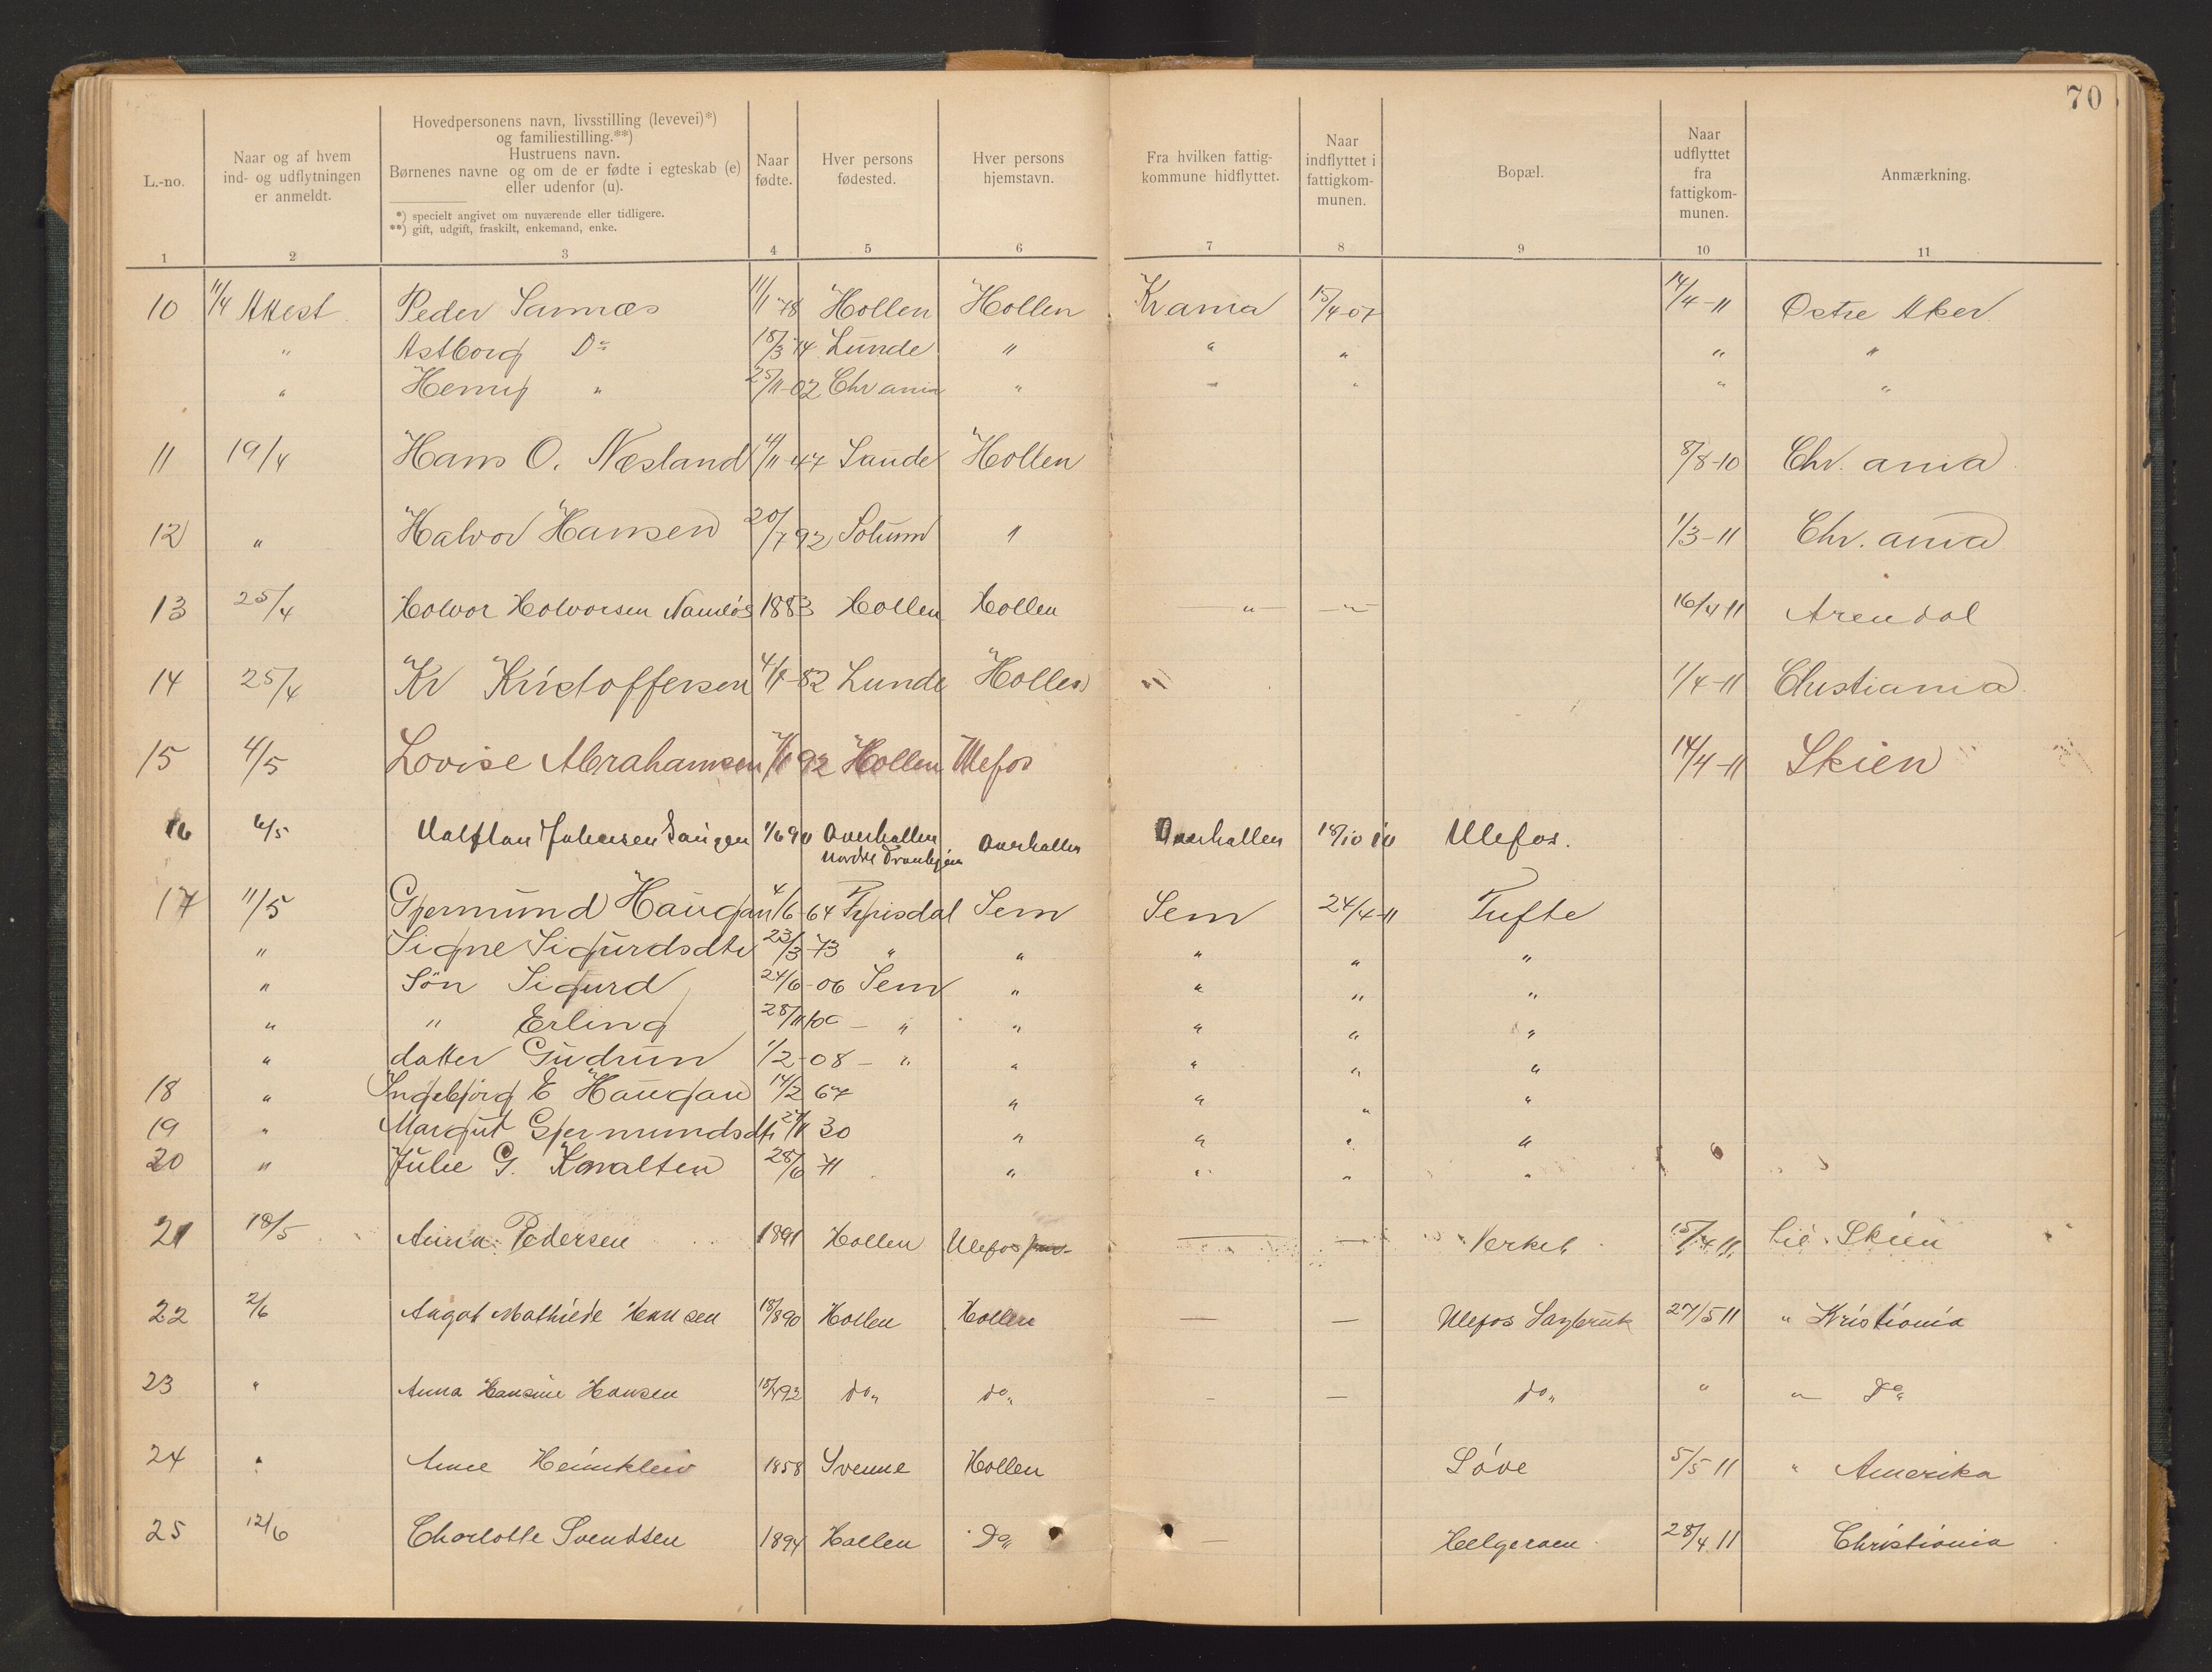 70
L.-no. Naar og af hvem ind- og udflytningen er anmeldt. Hovedpersonens navn, livsstilling (levevei)*) og familiestilling.**) Hustruens navn. Børnenes navne og om de er fødte i egteskab (e) eller udenfor (u). *) specielt angivet om nuværende eller tidligere. **) gift, udgift, fraskilt, enkemand, enke. Naar fødte. Hver persons fødested. Hver persons hjemstavn. Fra hvilken fattigkommune hidflyttet. Naar indflyttet i fattigkommunen. Bopæl. Naar udflyttet fra fattigkommunen. Anmærkning.
1 2 3 4 5 6 7 8 9 10 11
10 11/4 Attest Peder Sannæs 11/1 78 Hollen Hollen Krania 15/4-07 14/4-11 Østre Aker
" Astborg Do 18/3 74 Lunde " " " " "
" Henry " 25/11-02 Chr ania " " " " "
11 19/4 Hans O. Næsland 4/11-47 Saude Hollen 8/8-10 Chr. ania
12 " Halvor Hansen 20/7 92 Solum " 1/3-11 Chr. ania
13 25/4 Holvor Holvorsen Namløs 1883 Hollen Hollen " " 16/4 11 Arendal
14 25/4 Kr Kristoffersen 4/7-82 Lunde Hollen " 1/4-11 Christiania
15 4/5 Lovise Abrahamsen 92 Hollen Ulefos 14/4-11 Skien
16 6/5 Johansen 1/6 90 Overhallen Overhallen Overhallen 18/10 10 Ulefos.
Nordre Trondhjem
17 11/5 Gjermund Haugan 4/6-64 Fyrisdal Sem Sem 24/4-11 Tufte
" Signe Sigurdsdtr 23/3-73 " " " " "
" Søn Sigurd 24/6-06 Sem " " " "
" " Erling 28/11 " " " " "
" datter Gudrun 1/2-08 - " " " " "
18 " Ingebjørg E Haugan 14/2 67 " " " "
19 " Margit Gjermundsdtr 30 " " " "
20 " Julie G. Kovalten 28/6 71 " " " "
21 18/5 Anna Pedersen 1891 Hollen Ulefos — — Verket 15/4 11 til Skien
22 2/6 Aagot Mathilde Hansen 18/8 90 Hollen Hollen — — Ulefos Sagbruk 27/5 11 " Kristiania
23 " Anna Hansine Hansen 18/4 92 do " do " - — do " " " Do "
24 " Anne Heimklew 1858 Svenne Hollen Søve 5/5 11 " Amerika
25 12/6 Charlotte Svendsen 1894 Hollen Do " — Helgeraen 28/4 11 Christiania